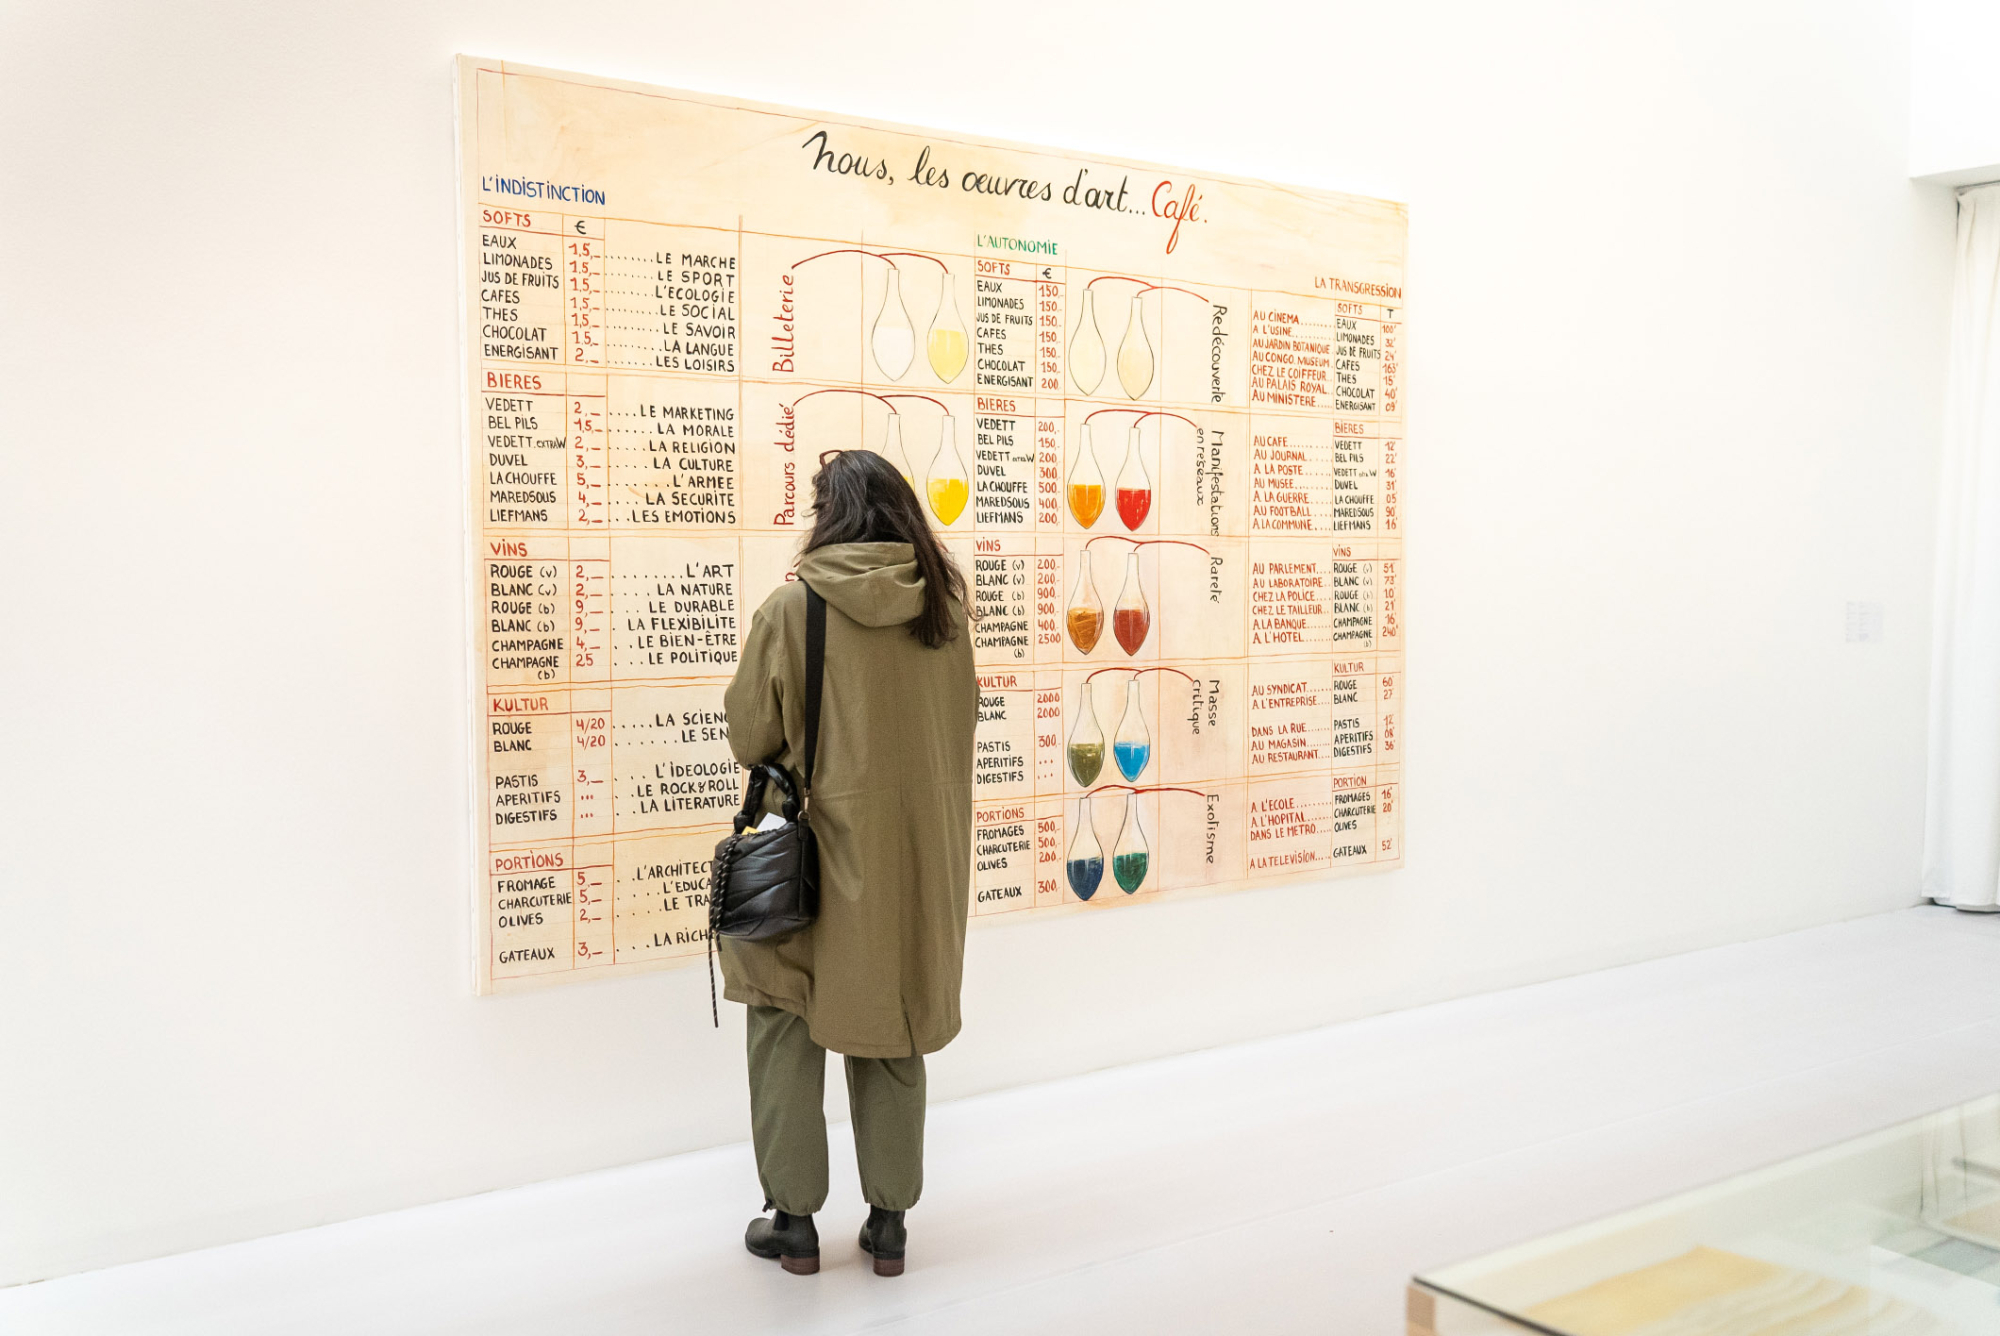 Nous, les œuvres d'art... Café.
L'INDISTINCTION
SOFTS €
EAUX 1,5,_ ........LE MARCHE
LIMONADES 1,5,_ ........LE SPORT
JUS DE FRUITS 1,5,_ .......L'ECOLOGIE
CAFES 1,5,_ .......LE SOCIAL
THES 1,5,_ .......LE SAVOIR
CHOCOLAT 1,5,_ .......LA LANGUE
ENERGISANT 2,_ ......LES LOISIRS
BIERES
VEDETT 2,_ ....LE MARKETING
BEL PILS 1,5,_ .......LA MORALE
VEDETT EXTRA W 2,_ ......LA RELIGION
DUVEL 3,_ ......LA CULTURE
LA CHOUFFE 5,_ ........L'ARMEE
MAREDSOUS 4,_ .....LA SECURITE
LIEFMANS 2,_ ...LES EMOTIONS
VINS
ROUGE (v) 2,_ .........L'ART
BLANC (v) 2,_ ......LA NATURE
ROUGE (b) 9,_ ....LE DURABLE
BLANC (b) 9,_ .LA FLEXIBILITE
CHAMPAGNE 4,_ ..LE BIEN-ÊTRE
CHAMPAGNE (b) 25 ...LE POLITIQUE
KULTUR
ROUGE 4/20 .....LA SCIENC
BLANC 4/20 .......LE SEN
PASTIS 3,_ ....L'IDEOLOGIE
APERITIFS ... .LE ROCK&ROLL
DIGESTIFS ... .LA LITERATURE
PORTIONS
FROMAGE 5,_ ..L'ARCHITECT
CHARCUTERIE 5,_ ....L'EDUCA
OLIVES 2,_ ....LE TRA
GATEAUX 3,_ ...LA RICH
Billeterie
Parcours dédié
L'AUTONOMIE
SOFTS €
EAUX 150,_
LIMONADES 150,_
JUS DE FRUITS 150,_
CAFES 150,_
THES 150,_
CHOCOLAT 150,_
ENERGISANT 200
BIERES
VEDETT 200,_
BEL PILS 150,_
VEDETT EXTRA W 200
DUVEL 300
LA CHOUFFE 500
MAREDSOUS 400
LIEFMANS 200,
VINS
ROUGE (v) 200,
BLANC (v) 200,
ROUGE (b) 900
BLANC (b) 900
CHAMPAGNE 400,
CHAMPAGNE (b) 2500
KULTUR
ROUGE 2000
BLANC 2000
PASTIS 300,
APERITIFS ...
DIGESTIFS ...
PORTIONS
FROMAGES 500,
CHARCUTERIE 500,
OLIVES 200,
GATEAUX 300,
Redécouverte
Manifestations
en réseaux
Rareté
Masse
critique
Exotisme
LA TRANSGRESSION
SOFTS T
AU CINEMA........EAUX 100'
A L'USINE.........LIMONADES 32'
AU JARDIN BOTANIQUE JUS DE FRUITS 24'
AU CONGO. MUSEUM. CAFES 163'
CHEZ LE COIFFEUR.. THES 15'
AU PALAIS ROYAL.. CHOCOLAT 40'
AU MINISTERE..... ENERGISANT 09'
BIERES
AU CAFE.......... VEDETT 12'
AU JOURNAL....... BEL PILS 22'
A LA POSTE....... VEDETT EXTRA W 16'
AU MUSEE......... DUVEL 31'
A LA GUERRE...... LA CHOUFFE 05
AU FOOTBALL...... MAREDSOUS 90'
A LA COMMUNE..... LIEFMANS 16'
VINS
AU PARLEMENT.... ROUGE (v) 51'
AU LABORATOIRE.. BLANC (v) 73'
CHEZ LA POLICE.. ROUGE (b) 10'
CHEZ LE TAILLEUR.. BLANC (b) 21'
A LA BANQUE..... CHAMPAGNE 16'
A L'HOTEL....... CHAMPAGNE (b) 240'
KULTUR
AU SYNDICAT...... ROUGE 60'
A L'ENTREPRISE... BLANC 27'
DANS LA RUE...... PASTIS 12'
AU MAGASIN....... APERITIFS 08'
AU RESTAURANT.... DIGESTIFS 36'
PORTION
A L'ECOLE....... FROMAGES 16'
A L'HOPITAL..... CHARCUTERIE 20'
DANS LE METRO.... OLIVES
A LA TELEVISION.... GATEAUX 52'